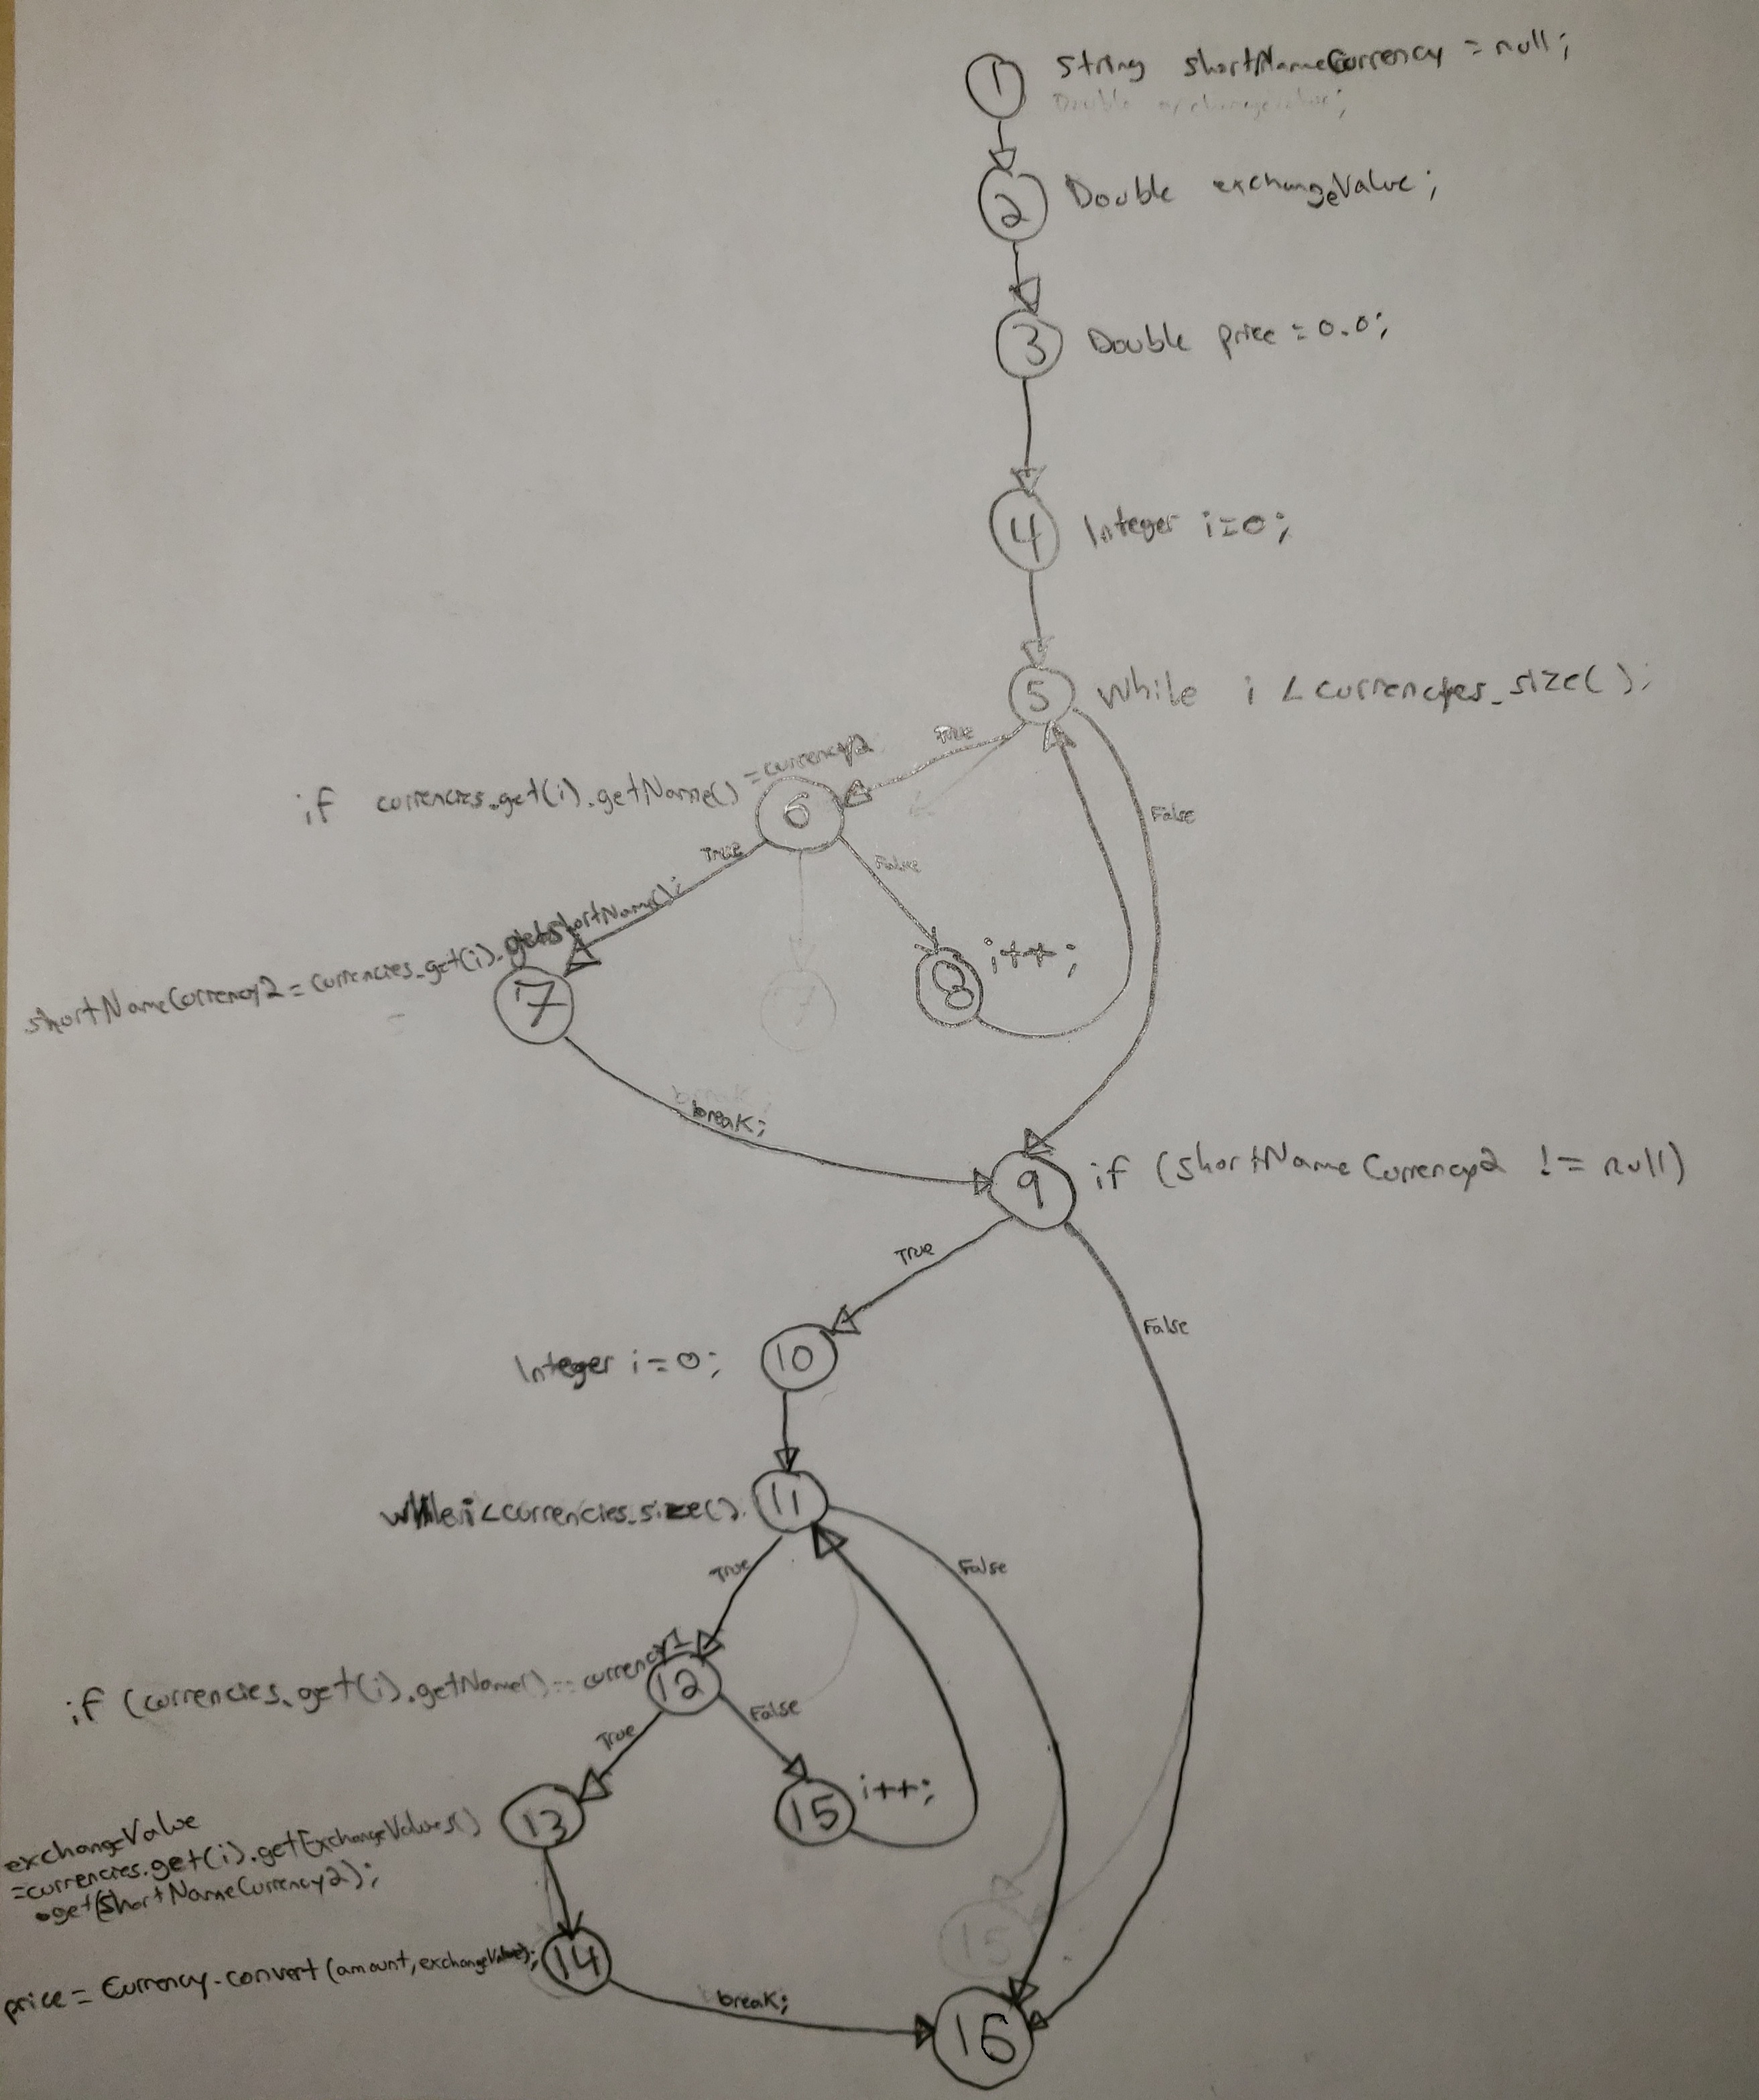 1 String shortNameCurrency = null;
Double exchangeValue;
2 Double exchangeValue;
3 Double price = 0.0;
4 Integer i=0;
5 While i < currencies.size();
True
if currencies.get(i).getName() = currency2
6
False
True
False
shortNameCurrency2 = currencies.get(i).getShortName();
7
7
8 i++;
break;
break;
9 if (shortNameCurrency2 != null)
True
False
Integer i=0; 10
while i < currencies.size(). 11
True
False
if (currencies.get(i).getName() == currency1
12
False
True
13
15 i++;
exchangeValue
=currencies.get(i).getExchangeValues()
.get(ShortNameCurrency2);
15
price = Currency.convert(amount, exchangeValue); 14
break;
16